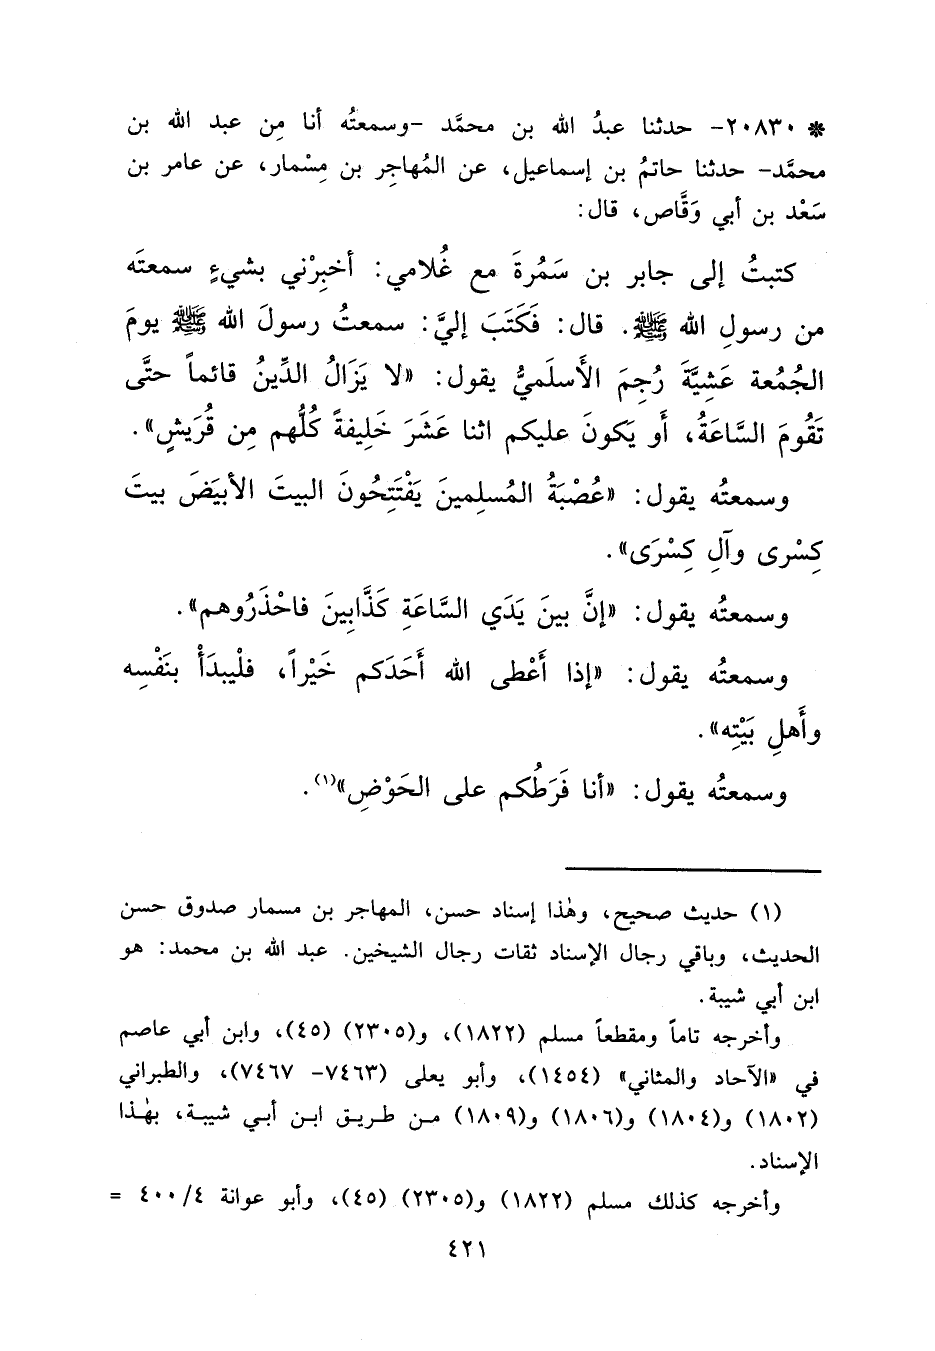 * ٢٠٨٣٠- حدثنا عبدُ الله بن محمَّد -وسمعتُه أنا مِن عبد الله بن
محمَّد- حدثنا حاتمُ بن إسماعيل، عن المُهاجِر بن مِسْمار، عن عامر بن
سَعْد بن أبي وَقَّاص، قال:
كتبتُ إلى جابر بن سَمُرةَ مع غُلامي: أخبِرْني بشيءٍ سمعتَه
من رسولِ الله ﷺ. قال: فَكَتَبَ إليَّ: سمعتُ رسولَ الله ﷺ يومَ
الجُمُعة عَشِيَّةَ رُجِمَ الأَسلَميُّ يقول: «لا يَزَالُ الدِّينُ قائماً حتَّى
تَقُومَ السَّاعَةُ، أَو يَكونَ عليكم اثنا عَشَرَ خَلِيفةً كُلُّهم مِن قُرَيشٍ».
وسمعتُه يقول: «عُصْبَةُ المُسلِمينَ يَفْتَتِحُونَ البيتَ الأبيَضَ بيتَ
كِسْرى وآلِ كِسْرَى».
وسمعتُه يقول: «إنَّ بينَ يَدَي السَّاعَةِ كَذَّابِينَ فاحْذَرُوهم».
وسمعتُه يقول: «إذا أَعْطى الله أَحَدَكم خَيْراً، فلْيبدَأْ بنَفْسِه
وأَهلِ بَيْتِه».
وسمعتُه يقول: «أنا فَرَطُكم على الحَوْضِ»(١).
(١) حديث صحيح، وهٰذا إسناد حسن، المهاجر بن مسمار صدوق حسن
الحديث، وباقي رجال الإسناد ثقات رجال الشيخين. عبد الله بن محمد: هو
ابن أبي شيبة.
وأخرجه تاماً ومقطعاً مسلم (١٨٢٢)، و(٢٣٠٥) (٤٥)، وابن أبي عاصم
في «الآحاد والمثاني» (١٤٥٤)، وأبو يعلى (٧٤٦٣- ٧٤٦٧)، والطبراني
(١٨٠٢) و(١٨٠٤) و(١٨٠٦) و(١٨٠٩) من طريق ابن أبي شيبة، بهٰذا
الإسناد.
وأخرجه كذلك مسلم (١٨٢٢) و(٢٣٠٥) (٤٥)، وأبو عوانة ٤/ ٤٠٠ =
٤٢١